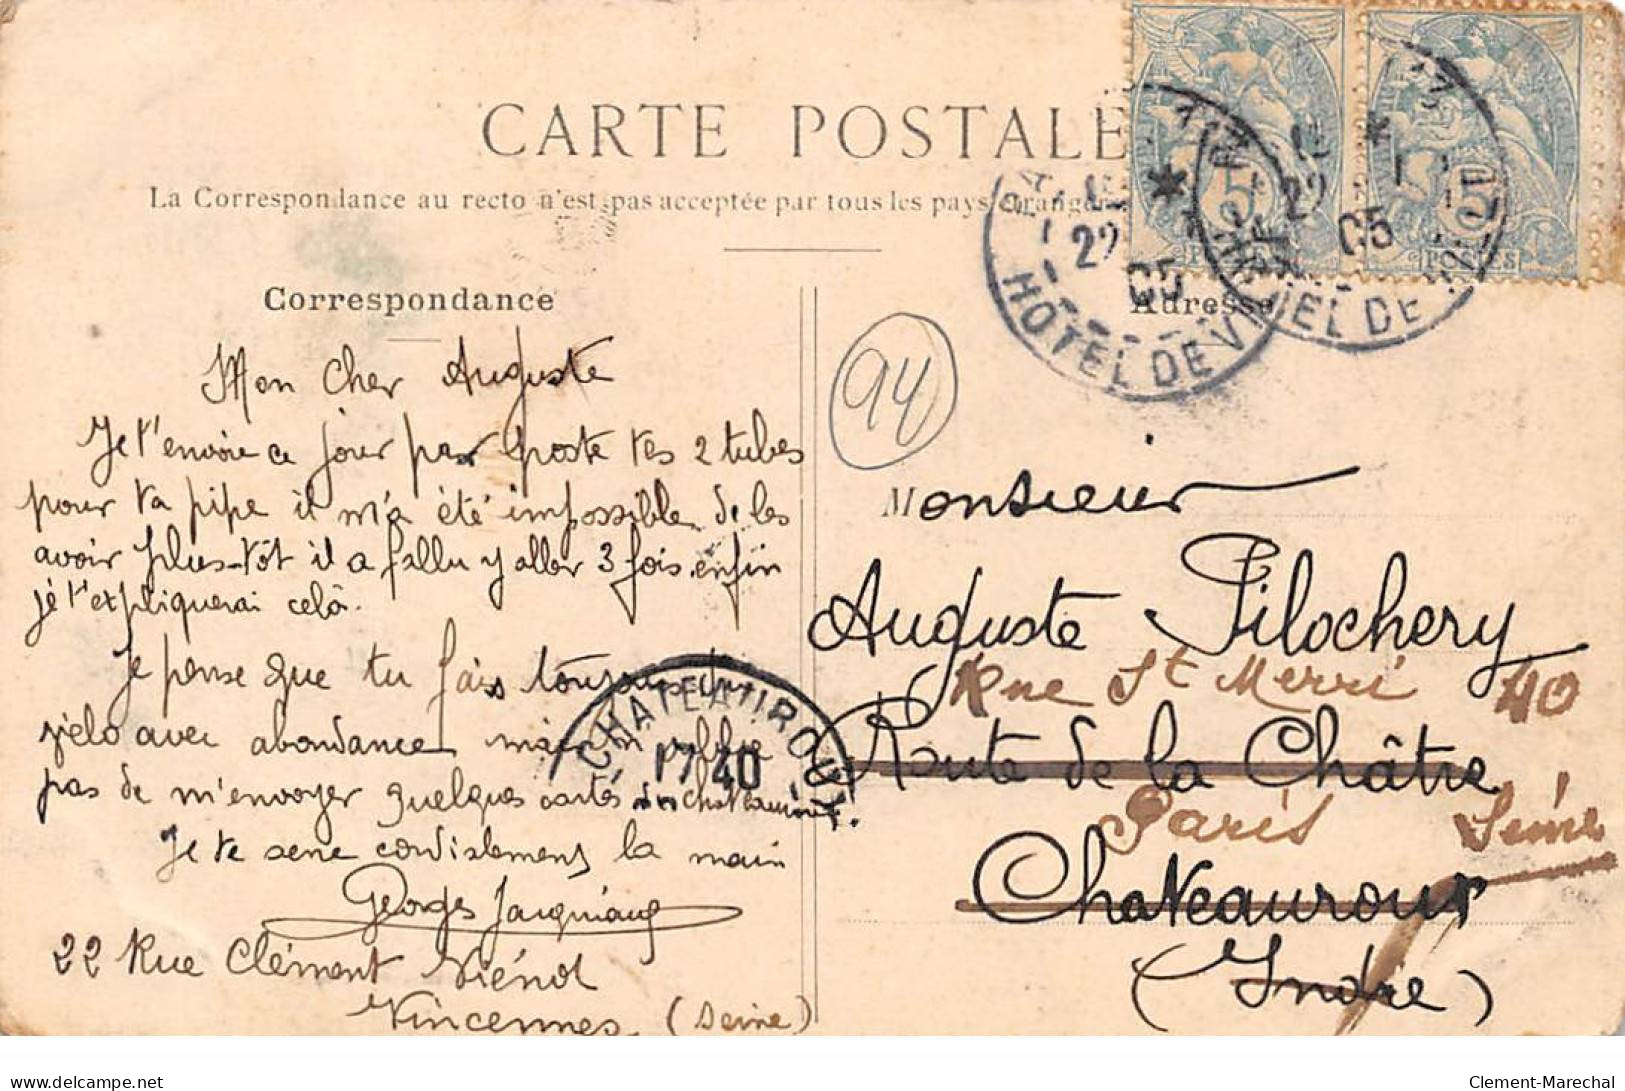 CARTE POSTALE
La Correspondance au recto n'est pas acceptée par tous les pays étrangers
Correspondance
Mon Cher Auguste
Je t'envoie ce jour par poste tes 2 tubes
pour ta pipe il m'a été impossible de les
avoir plus-tôt il a fallu y aller 3 fois enfin
je t'expliquerai celà.
Je pense que tu fais toujours du
vélo avec abondance mais n'oublie
pas de m'envoyer quelques cartes de Chateauroux.
Je te serre cordialement la main
Georges
22 Rue Clément Viénot
Vincennes (Seine)
94
5
POSTES
22
05
HOTEL DE VILLE
22
05
HOTEL DE VILLE
Adresse
Monsieur
Auguste Pilochery
Rue St Merri 40
Route de la Châtre
Paris Seine
Chateauroux
(Indre)
CHATEAUROUX
17 40
www.delcampe.net
Clement-Marechal